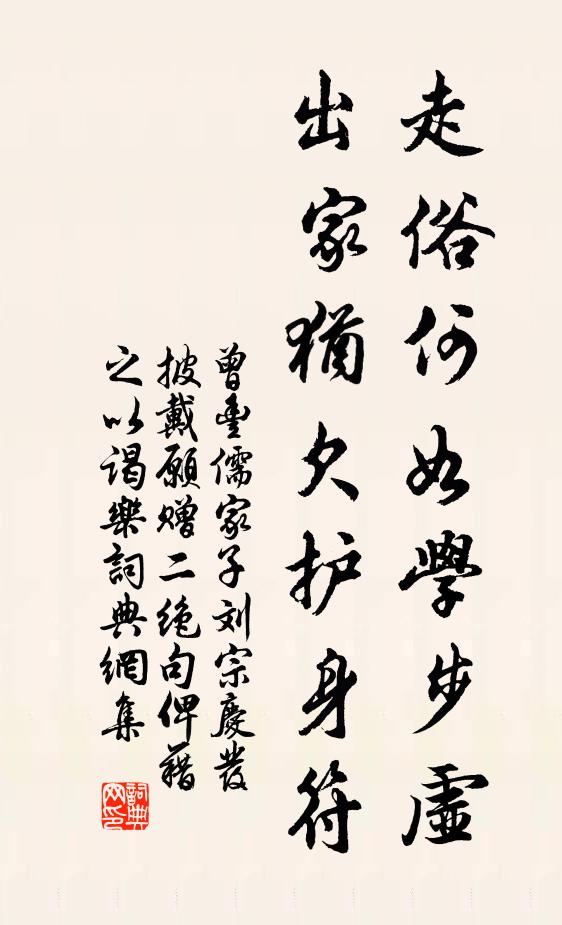 走俗何如學步虛
出家猶欠护身符
曾豐儒家子刘宗慶發
披戴願贈二絶句俾藉
之以谒樂詞典網集
詞典网印